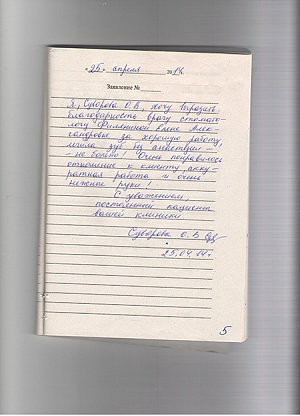 « 25 » апреля 2014.
Заявление №
Я, Суворова О.В., хочу выразить
благодарность врачу стомато-
логу Филиппиной Елене Алек-
сандровне за хорошую работу,
лечила зуб на анестезии -
- не больно! Очень понравилось
отношение к клиенту, акку-
ратная работа и очень
нежные руки!
С уважением,
постоянный пациент
вашей клиники
Суворова О.В.
25.04.14г
5